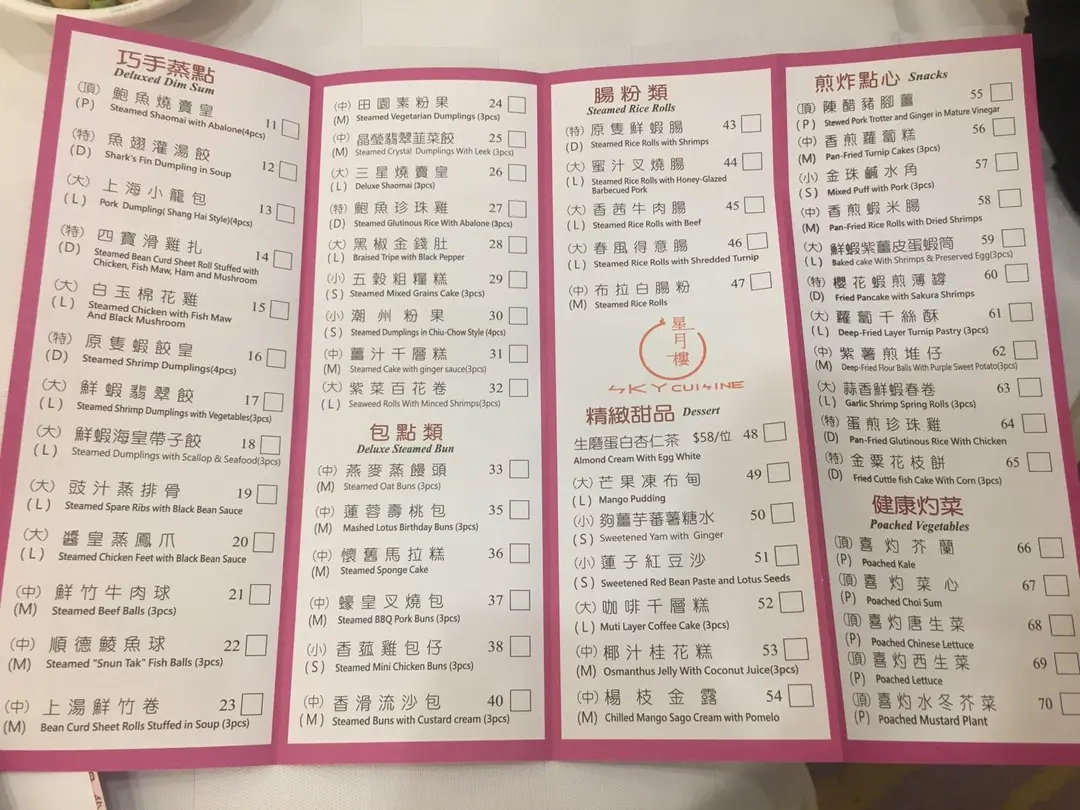 巧手蒸點
Deluxed Dim Sum
(頂) 鮑魚燒賣皇
(P) Steamed Shaomai with Abalone(4pcs) 11
(特) 魚翅灌湯餃
(D) Shark's Fin Dumpling in Soup 12
(大) 上海小籠包
(L) Pork Dumpling( Shang Hai Style)(4pcs) 13
(特) 四寶滑雞扎 14
(D) Steamed Bean Curd Sheet Roll Stuffed with
Chicken, Fish Maw, Ham and Mushroom
(大) 白玉棉花雞 15
(L) Steamed Chicken with Fish Maw
And Black Mushroom
(特) 原隻蝦餃皇 16
(D) Steamed Shrimp Dumplings(4pcs)
(大) 鮮蝦翡翠餃 17
(L) Steamed Shrimp Dumplings with Vegetables(3pcs)
(大) 鮮蝦海皇帶子餃 18
(L) Steamed Dumplings with Scallop & Seafood(3pcs)
(大) 豉汁蒸排骨 19
(L) Steamed Spare Ribs with Black Bean Sauce
(大) 醬皇蒸鳳爪 20
(L) Steamed Chicken Feet with Black Bean Sauce
(中) 鮮竹牛肉球 21
(M) Steamed Beef Balls (3pcs)
(中) 順德鯪魚球 22
(M) Steamed "Snun Tak" Fish Balls (3pcs)
(中) 上湯鮮竹卷 23
(M) Bean Curd Sheet Rolls Stuffed in Soup (3pcs)
(中) 田園素粉果 24
(M) Steamed Vegetarian Dumplings (3pcs)
(中) 晶瑩翡翠韮菜餃 25
(M) Steamed Crystal Dumplings With Leek (3pcs)
(大) 三星燒賣皇 26
(L) Deluxe Shaomai (3pcs)
(特) 鮑魚珍珠雞 27
(D) Steamed Glutinous Rice With Abalone (3pcs)
(大) 黑椒金錢肚 28
(L) Braised Tripe with Black Pepper
(小) 五穀粗糧糕 29
(S) Steamed Mixed Grains Cake (3pcs)
(小) 潮州粉果 30
(S) Steamed Dumplings in Chiu-Chow Style (4pcs)
(中) 薑汁千層糕 31
(M) Steamed Cake with ginger sauce(3pcs)
(大) 紫菜百花卷 32
(L) Seaweed Rolls With Minced Shrimps(3pcs)
包點類
Deluxe Steamed Bun
(中) 燕麥蒸饅頭 33
(M) Steamed Oat Buns (3pcs)
(中) 蓮蓉壽桃包 35
(M) Mashed Lotus Birthday Buns (3pcs)
(中) 懷舊馬拉糕 36
(M) Steamed Sponge Cake
(中) 蠔皇叉燒包 37
(M) Steamed BBQ Pork Buns (3pcs)
(小) 香菰雞包仔 38
(S) Steamed Mini Chicken Buns (3pcs)
(中) 香滑流沙包 40
(M) Steamed Buns with Custard cream (3pcs)
腸粉類
Steamed Rice Rolls
(特) 原隻鮮蝦腸 43
(D) Steamed Rice Rolls with Shrimps
(大) 蜜汁叉燒腸 44
(L) Steamed Rice Rolls with Honey-Glazed
Barbecued Pork
(大) 香茜牛肉腸 45
(L) Steamed Rice Rolls with Beef
(大) 春風得意腸 46
(L) Steamed Rice Rolls with Shredded Turnip
(中) 布拉白腸粉 47
(M) Steamed Rice Rolls
星月樓
SKY CUISINE
精緻甜品 Dessert
生磨蛋白杏仁茶 $58/位 48
Almond Cream With Egg White
(大) 芒果凍布甸 49
(L) Mango Pudding
(小) 夠薑芋蕃薯糖水 50
(S) Sweetened Yam with Ginger
(小) 蓮子紅豆沙 51
(S) Sweetened Red Bean Paste and Lotus Seeds
(大) 咖啡千層糕 52
(L) Muti Layer Coffee Cake (3pcs)
(中) 椰汁桂花糕 53
(M) Osmanthus Jelly With Coconut Juice(3pcs)
(中) 楊枝金露 54
(M) Chilled Mango Sago Cream with Pomelo
煎炸點心 Snacks
(頂) 陳醋豬腳薑 55
(P) Stewed Pork Trotter and Ginger in Mature Vinegar
(中) 香煎蘿蔔糕 56
(M) Pan-Fried Turnip Cakes (3pcs)
(小) 金珠鹹水角 57
(S) Mixed Puff with Pork (3pcs)
(中) 香煎蝦米腸 58
(M) Pan-Fried Rice Rolls with Dried Shrimps
(大) 鮮蝦紫薑皮蛋蝦筒 59
(L) Baked cake With Shrimps & Preserved Egg(3pcs)
(特) 櫻花蝦煎薄罉 60
(D) Fried Pancake with Sakura Shrimps
(大) 蘿蔔千絲酥 61
(L) Deep-Fried Layer Turnip Pastry (3pcs)
(中) 紫薯煎堆仔 62
(M) Deep-Fried Flour Balls With Purple Sweet Potato(3pcs)
(大) 蒜香鮮蝦春卷 63
(L) Garlic Shrimp Spring Rolls (3pcs)
(特) 蛋煎珍珠雞 64
(D) Pan-Fried Glutinous Rice With Chicken
(特) 金粟花枝餅 65
(D) Fried Cuttle fish Cake With Corn (3pcs)
健康灼菜
Poached Vegetables
(頂) 喜灼芥蘭 66
(P) Poached Kale
(頂) 喜灼菜心 67
(P) Poached Choi Sum
(頂) 喜灼唐生菜 68
(P) Poached Chinese Lettuce
(頂) 喜灼西生菜 69
(P) Poached Lettuce
(頂) 喜灼水冬芥菜 70
(P) Poached Mustard Plant